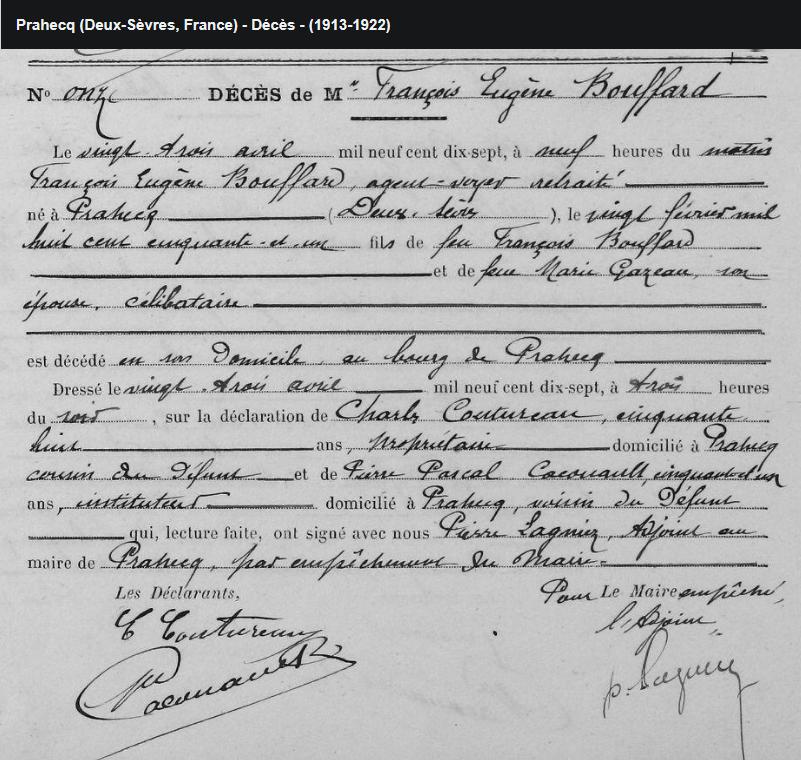 Prahecq (Deux-Sèvres, France) - Décès - (1913-1922)
N° onze DÉCÈS de Mr François Eugène Bouffard
Le vingt-trois avril mil neuf cent dix-sept, à neuf heures du matin
François Eugène Bouffard, agent-voyer retraité
né à Prahecq (Deux-Sèvres), le vingt février mil
huit cent cinquante-et-un fils de feu François Bouffard
et de feue Marie Gazeau, son
épouse, célibataire
est décédé en son domicile, au bourg de Prahecq
Dressé le vingt-trois avril mil neuf cent dix-sept, à trois heures
du soir, sur la déclaration de Charles Coutureau, cinquante
huit ans, propriétaire domicilié à Prahecq
cousin du défunt et de Pierre Pascal Cacouault cinquante et un
ans, instituteur domicilié à Prahecq, voisin du défunt
qui, lecture faite, ont signé avec nous Pierre Lagniez, Adjoint au
maire de Prahecq, par empêchement du Maire.
Les Déclarants, Pour Le Maire empêché,
l'Adjoint
C Coutureau
Cacouault